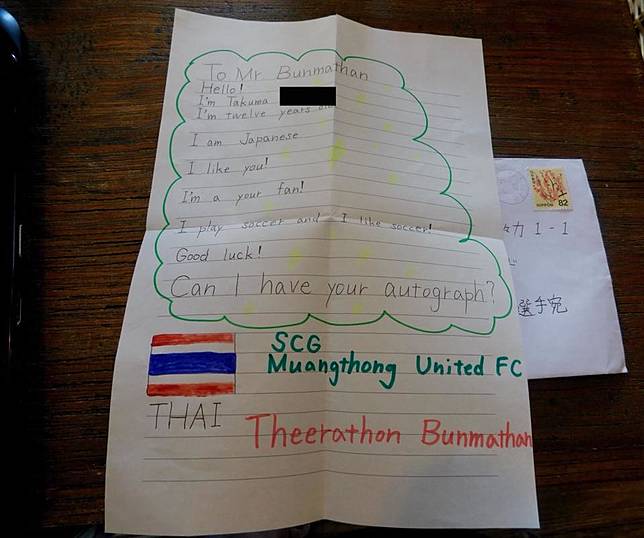 To Mr. Bunmathan
Hello!
I'm Takuma
I'm twelve years old
I am Japanese
I like you!
I'm a your fan!
I play soccer and I like soccer!
Good luck!
Can I have your autograph?
SCG
Muangthong United FC
THAI
Theerathon Bunmathan
NIPPON 82
力 1-1
選手宛